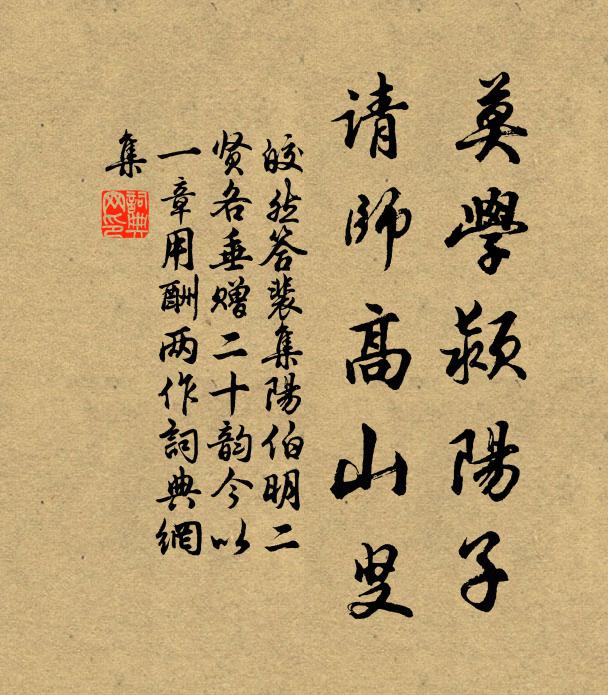 莫學潁陽子
请師高山叟
皎然答裴集陽伯明二
贤各垂赠二十韵今以
一章用酬两作詞典網
集
詞典
网印